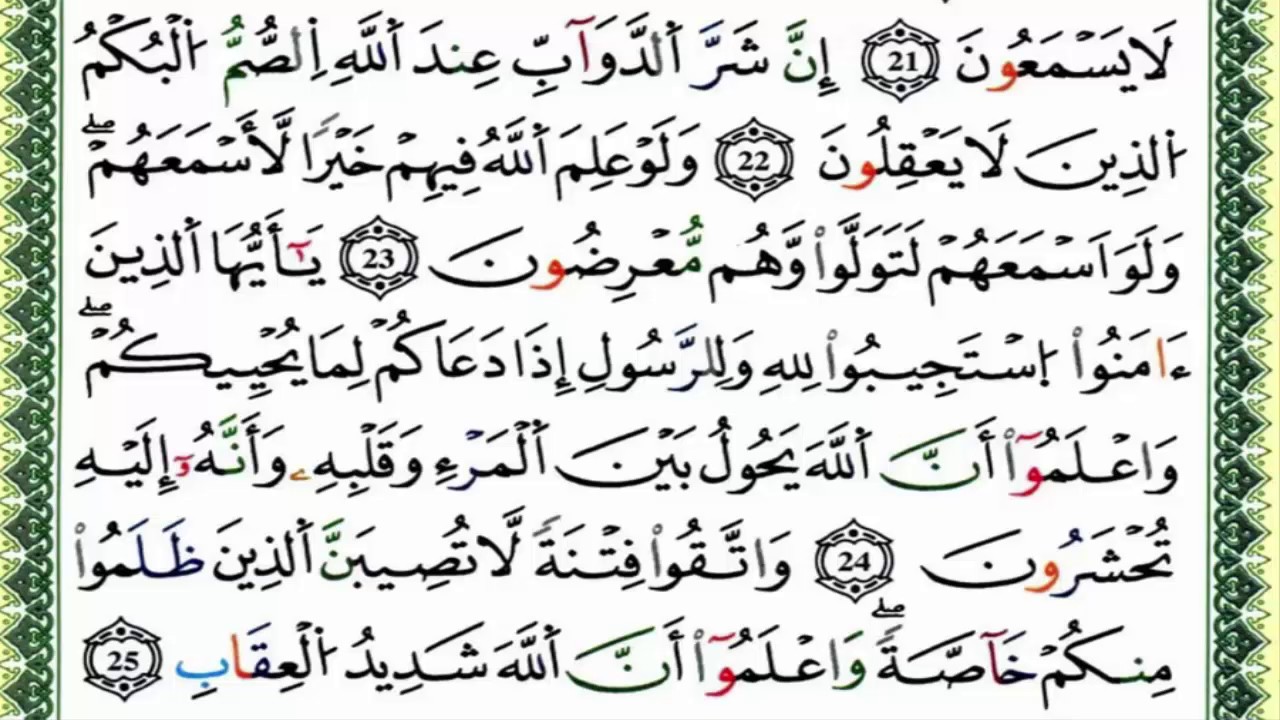 لَا يَسْمَعُونَ 21 إِنَّ شَرَّ الدَّوَآبِّ عِندَ اللَّهِ اِلصُّمُّ الْبُكْمُ
الذِينَ لَا يَعْقِلُونَ 22 وَلَوْ عَلِمَ اللَّهُ فِيهِمْ خَيْرًا لَّأَسْمَعَهُمْۖ
وَلَوَ اَسْمَعَهُمْ لَتَوَلَّواْ وَّهُم مُّعْرِضُونَ 23 يَٰٓأَيُّهَا الذِينَ
ءَامَنُواْ اُ۪سْتَجِيبُواْ لِلهِ وَلِلرَّسُولِ إِذَا دَعَاكُمْ لِمَا يُحْيِيكُمْۖ
وَاعْلَمُوٓاْ أَنَّ اللَّهَ يَحُولُ بَيْنَ الْمَرْءِ وَقَلْبِهِۦ وَأَنَّهُۥٓ إِلَيْهِ
تُحْشَرُونَ 24 وَاتَّقُواْ فِتْنَةً لَّا تُصِيبَنَّ الذِينَ ظَلَمُواْ
مِنكُمْ خَآصَّةًۖ وَاعْلَمُوٓاْ أَنَّ اللَّهَ شَدِيدُ الْعِقَابِ 25